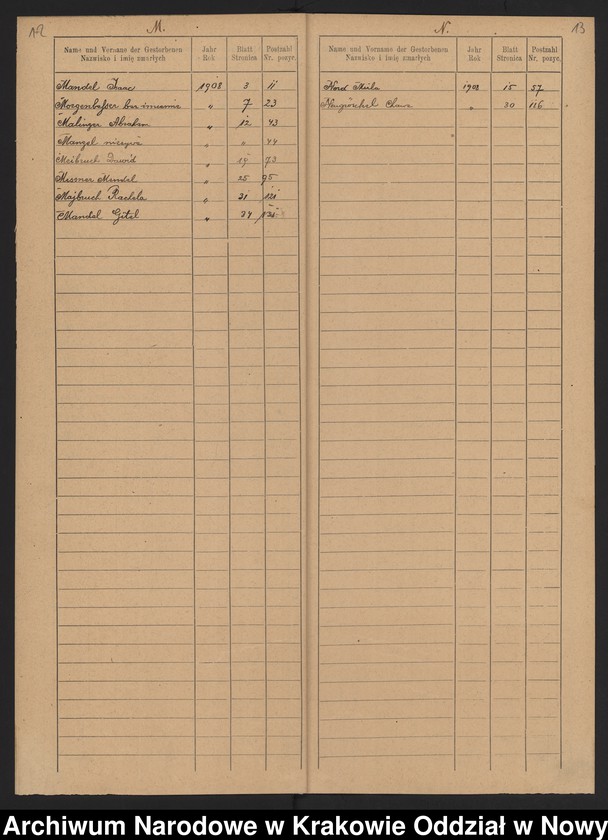 12
M.
Name und Vorname der Gestorbenen
Nazwisko i imię zmarłych
Jahr
Rok
Blatt
Stronica
Postzahl
Nr. pozyc.
Mandel Izaac 1908 3 11
Morgenbesser bez imienia " 7 23
Malinger Abraham " 12 43
Mangel " " 44
Meibruch Dawid " 19 73
Messner Mendel " 25 95
Majbruch Rachela " 31 121
Mandel Gitel "
N.
13
Name und Vorname der Gestorbenen
Nazwisko i imię zmarłych
Jahr
Rok
Blatt
Stronica
Postzahl
Nr. pozyc.
Nord 1908 15 57
Neugröschel " 30 116
Archiwum Narodowe w Krakowie Oddział w Nowy